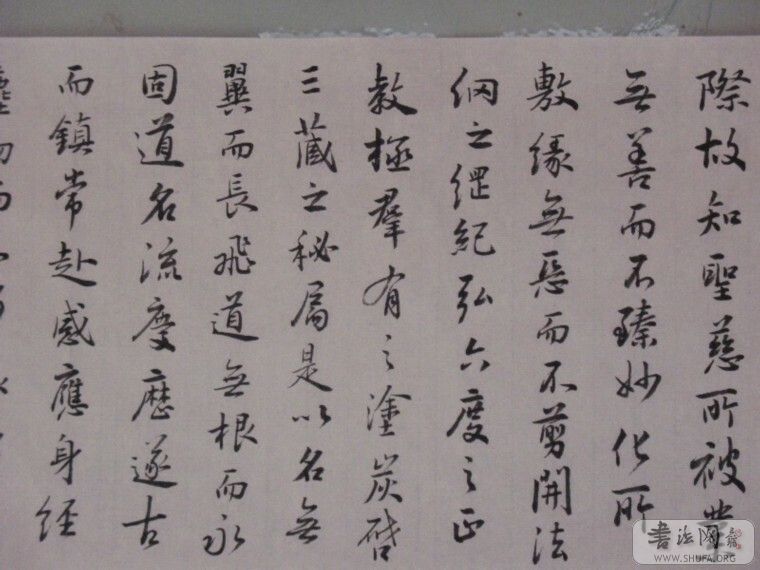 際故知聖慈所被業
無善而不臻妙化所
敷緣無惡而不剪開法
網之綱紀弘六度之正
教極羣有之塗炭啓
三藏之秘扃是以名無
翼而長飛道無根而永
固道名流慶歷遂古
而鎮常赴感應身經
書法网
WWW.SHUFA.ORG